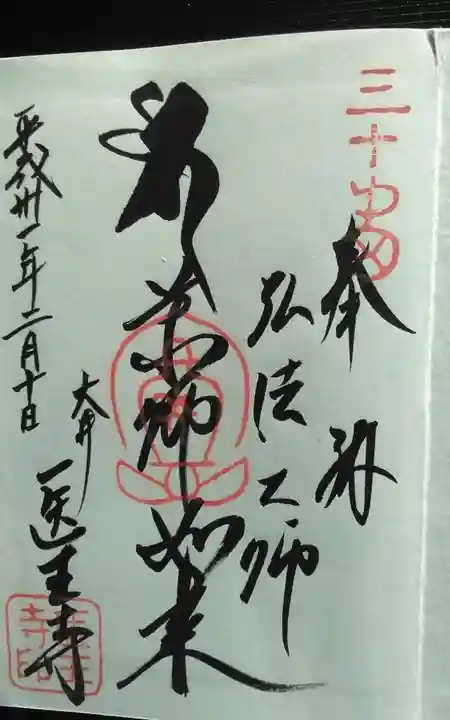 三十番
奉拝
弘法大師
薬師如来
大井
医王寺
平成卅一年二月十日
医王寺印